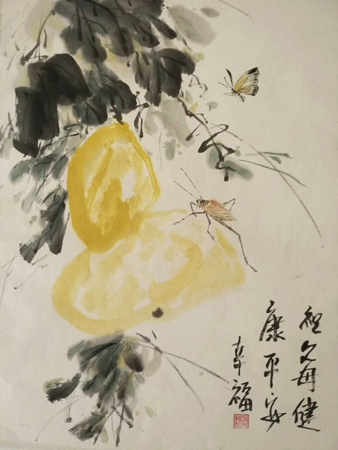 祝父母健
康平安
幸福